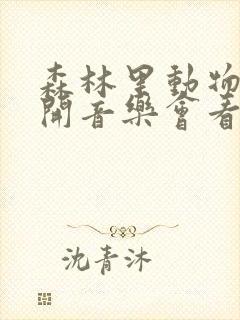 森林里動物
開音樂會看
沈青沐